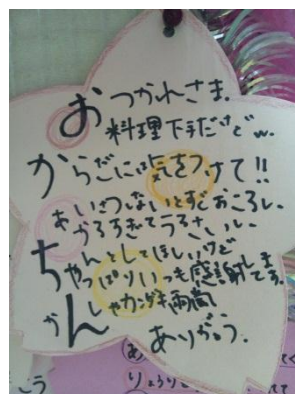 おつかれさま.
料理下手だけどw.
からだには気をつけて!!
あいさつしないとすぐおこるし.
かろろぎてうるさいし.
ちゃんとしてほしいけど
やっぱりいつも感謝してます.
かんしゃカンゲキ雨嵐
ありがとう.
りょうり